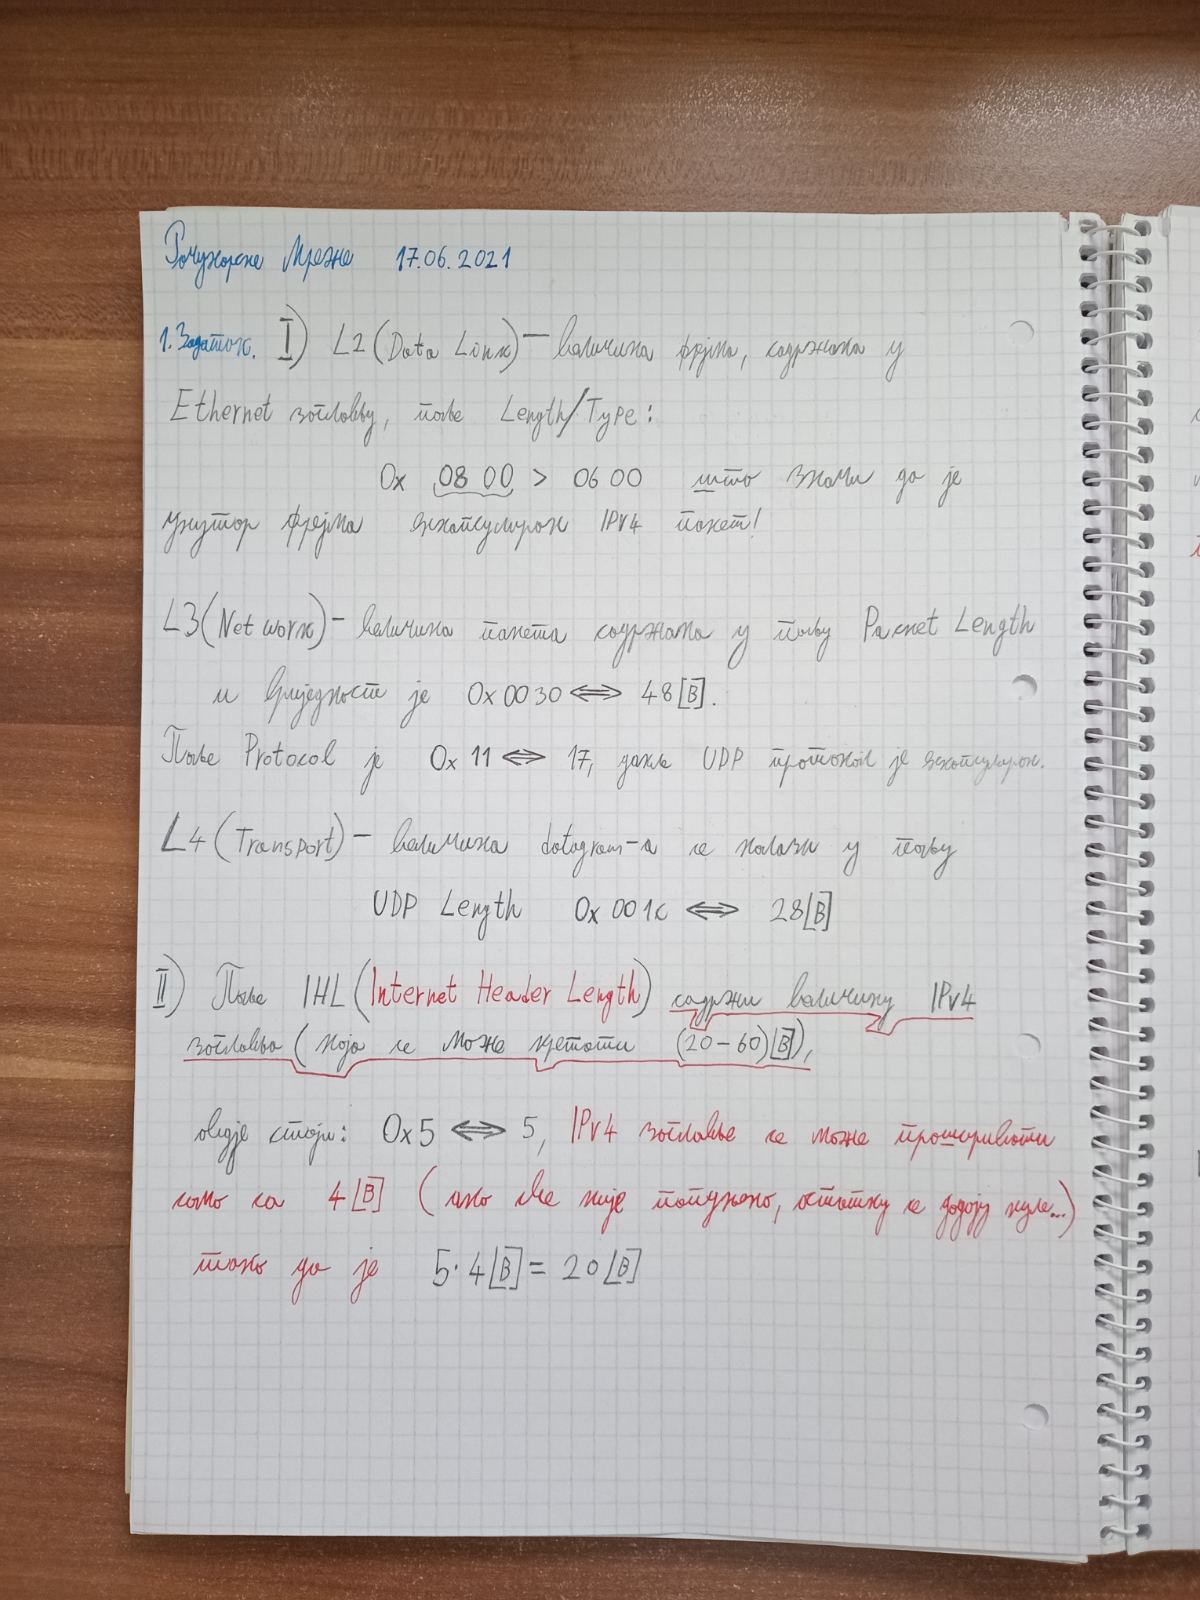 Рачунарске Мреже 17.06.2021
1. Задатак. I) L2 (Data Link) – величина фрејма, садржана у
Ethernet заглављу, поље Length/Type:
0x 08 00 > 06 00 што значи да је
унутар фрејма енкапсулиран IPv4 пакет!
L3 (Network) – величина пакета садржана у пољу Packet Length
и вриједност је 0x0030 ⟺ 48[B].
Поље Protocol је 0x 11 ⟺ 17, дакле UDP протокол је енкапсулиран.
L4 (Transport) – величина datagram-а се налази у пољу
UDP Length 0x 001c ⟺ 28[B]
II) Поље IHL (Internet Header Length) садржи величину IPv4
заглавља (која се може кретати (20-60)[B]),
овдје стоји: 0x5 ⟺ 5, IPv4 заглавље се може проширивати
само са 4[B] (ако све није попуњено, остатку се додају нуле...)
тако да је 5·4[B] = 20[B]